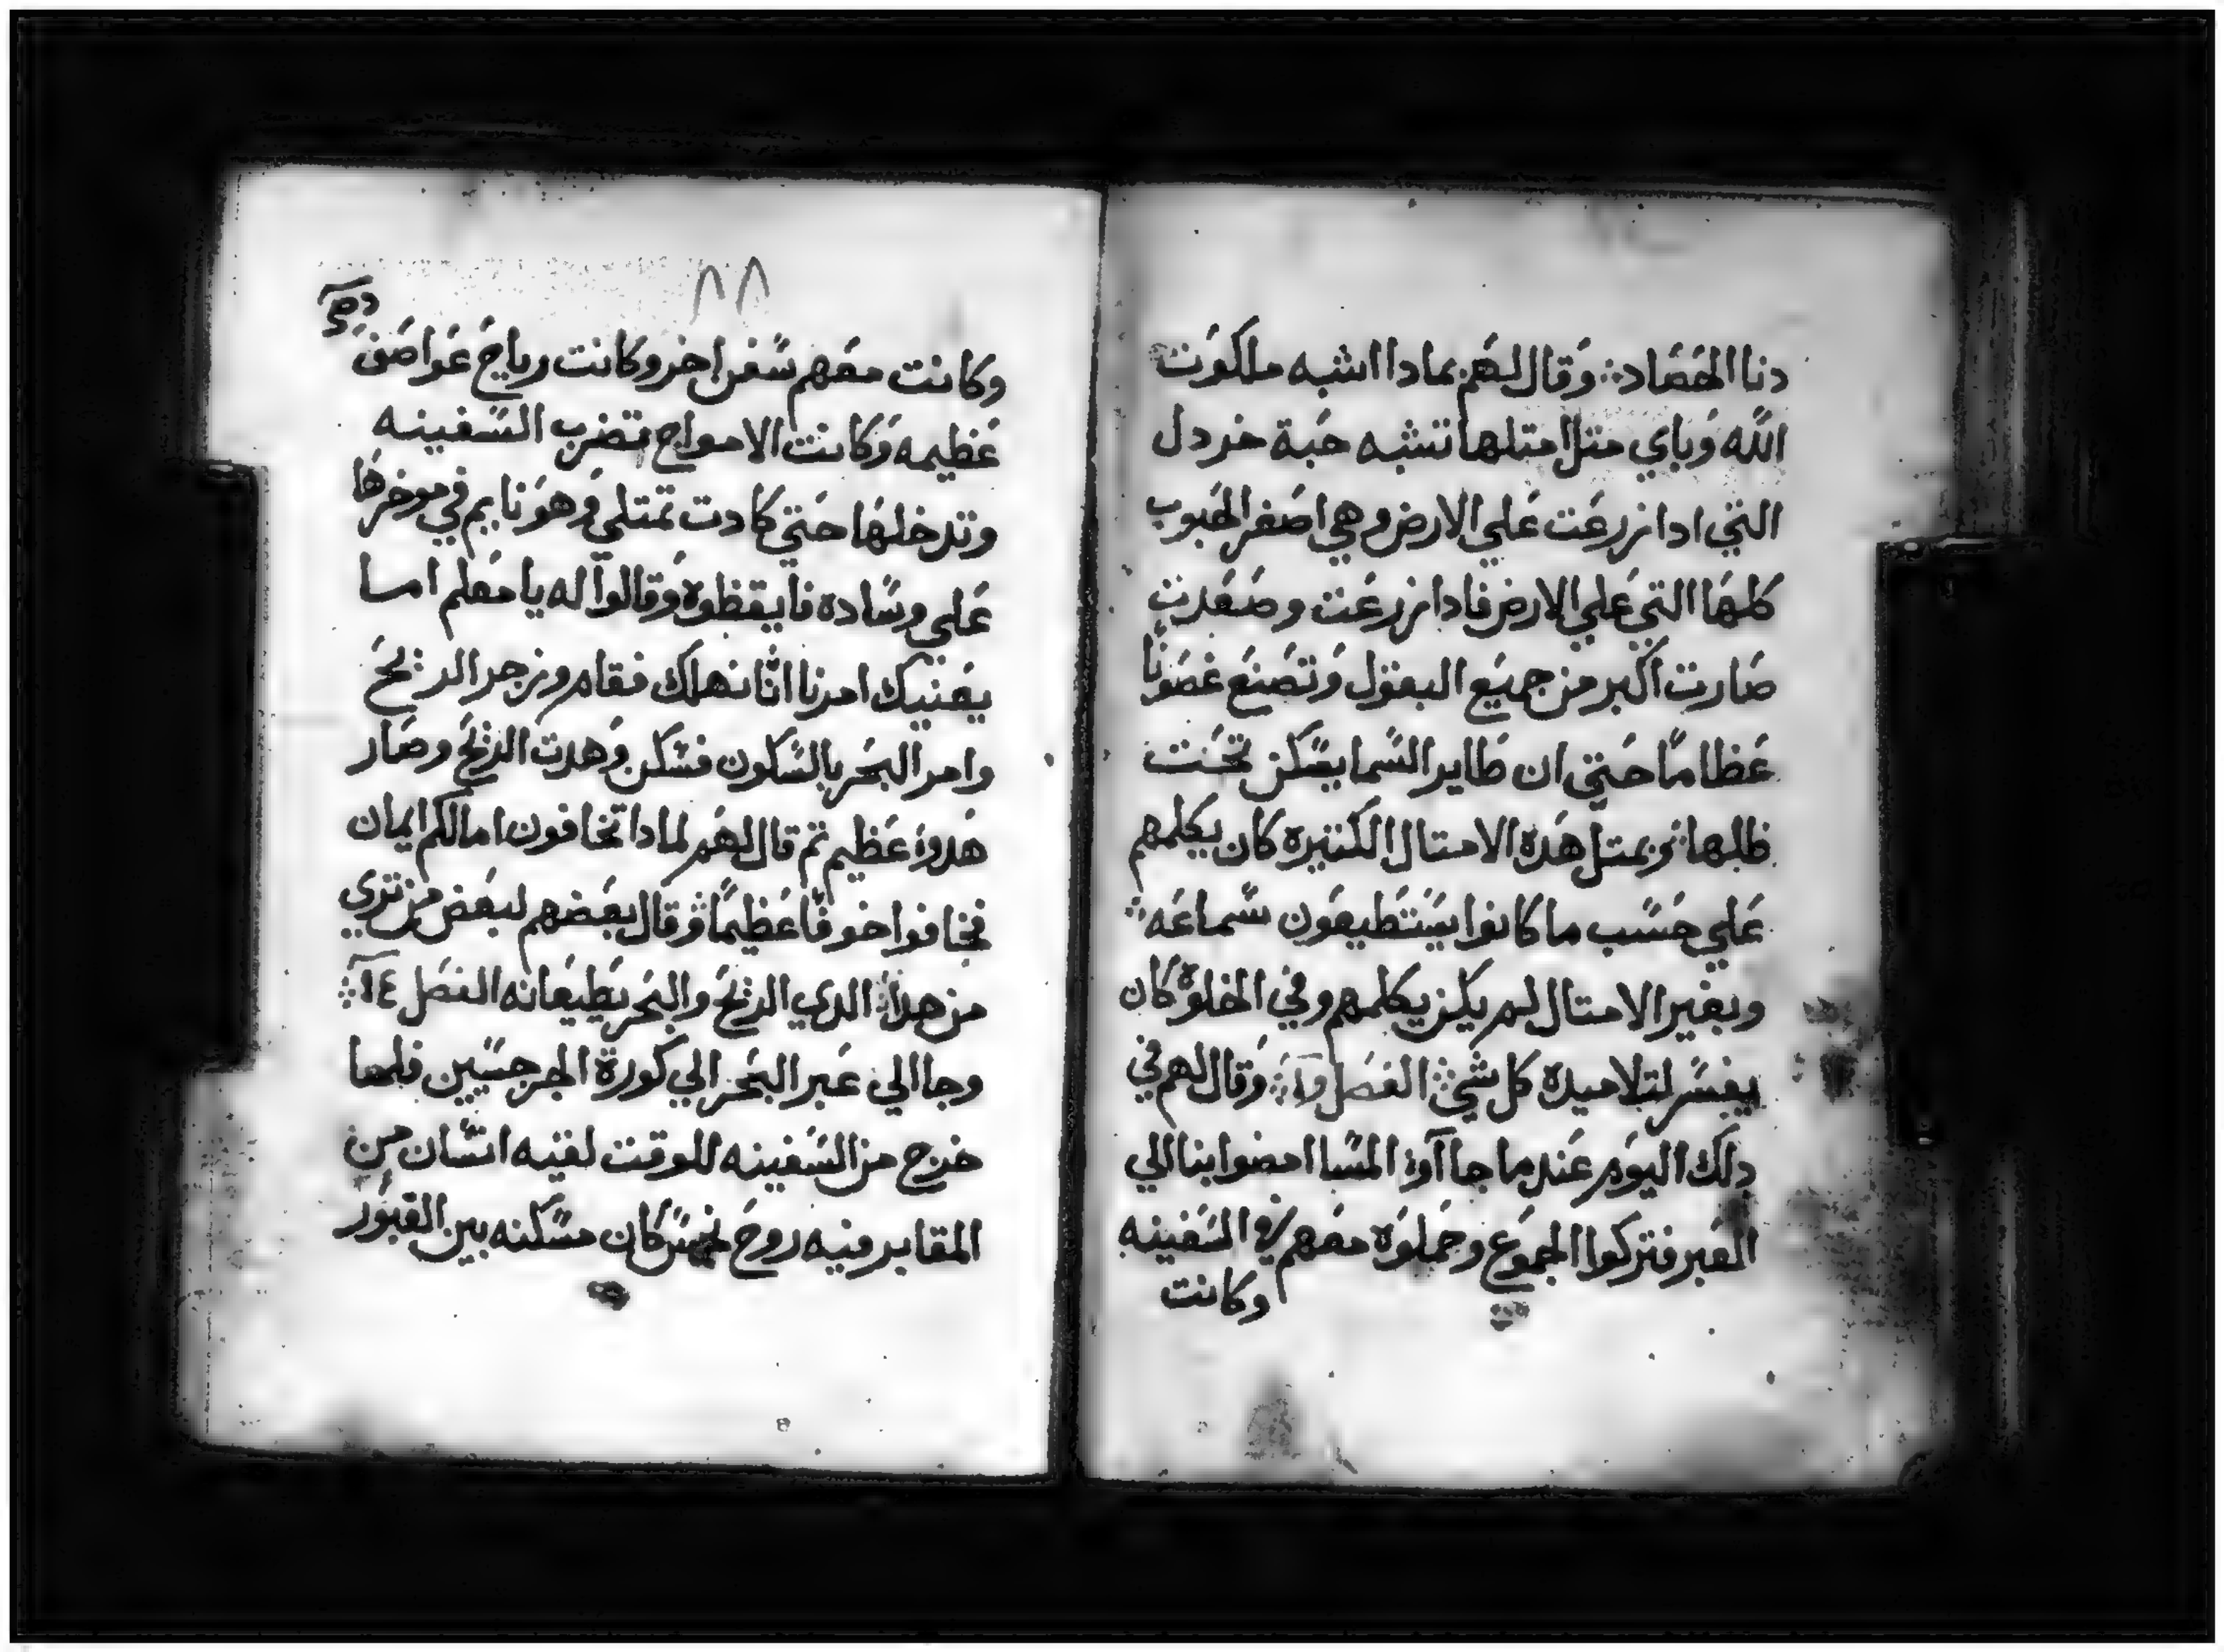 دنا الحصاد ؞ وقال لهم بمادا اشبه ملكوت
الله وباي متل امتلها تشبه حبة خردل
التي ادا زرعت علي الارض وهي اصغر الحبوب
كلها التي علي الارض فادا زرعت وصعدت
صارت اكبر من جميع البقول وتصنع غصونًا
عظامًا حتي ان طاير السما يسكن تحت
ظلها ؞ وبمتل هده الامتال الكتيره كان يكلمهم
علي حسب ما كانوا يستطيعون سماعه ؞
وبغير الامتال لم يكن يكلمهم وفي الخلوة كان
يفسر لتلاميده كل شي ؞ الفصل ؞ وقال لهم في
دلك اليوم عند ما جا آوٓ المسا امضوا بنا الي
العبر فتركوا الجموع وحملوه معهم في السفينه
وكانت
٨٨
وكانت معهم سفن اخر وكانت رياح عواصف
عظيمه وكانت الامواج تضرب السفينه
وتدخلها حتي كادت تمتلي وهو نايم في موخرها
علي وساده فايقظوه وقالوا له يا معلم اما
يعنيك امرنا اننا نهلك فقام وزجر الريح
وامر البحر بالسكون فسكن وهدت الريح وصار
هدوٓ عظيم تم قال لهم لمادا تخافون اما لكم ايمان
فخافوا خوفًا عظيمًا وقال بعضهم لبعض من تري
من هدا الدي الريح والبحر يطيعانه الفصل ١٤ ؞
وجا الي عبر البحر الي كورة الجرجسيين فلما
خرج من السفينه للوقت لقيه انسان من
المقابر فيه روح نجس كان مسكنه بين القبور